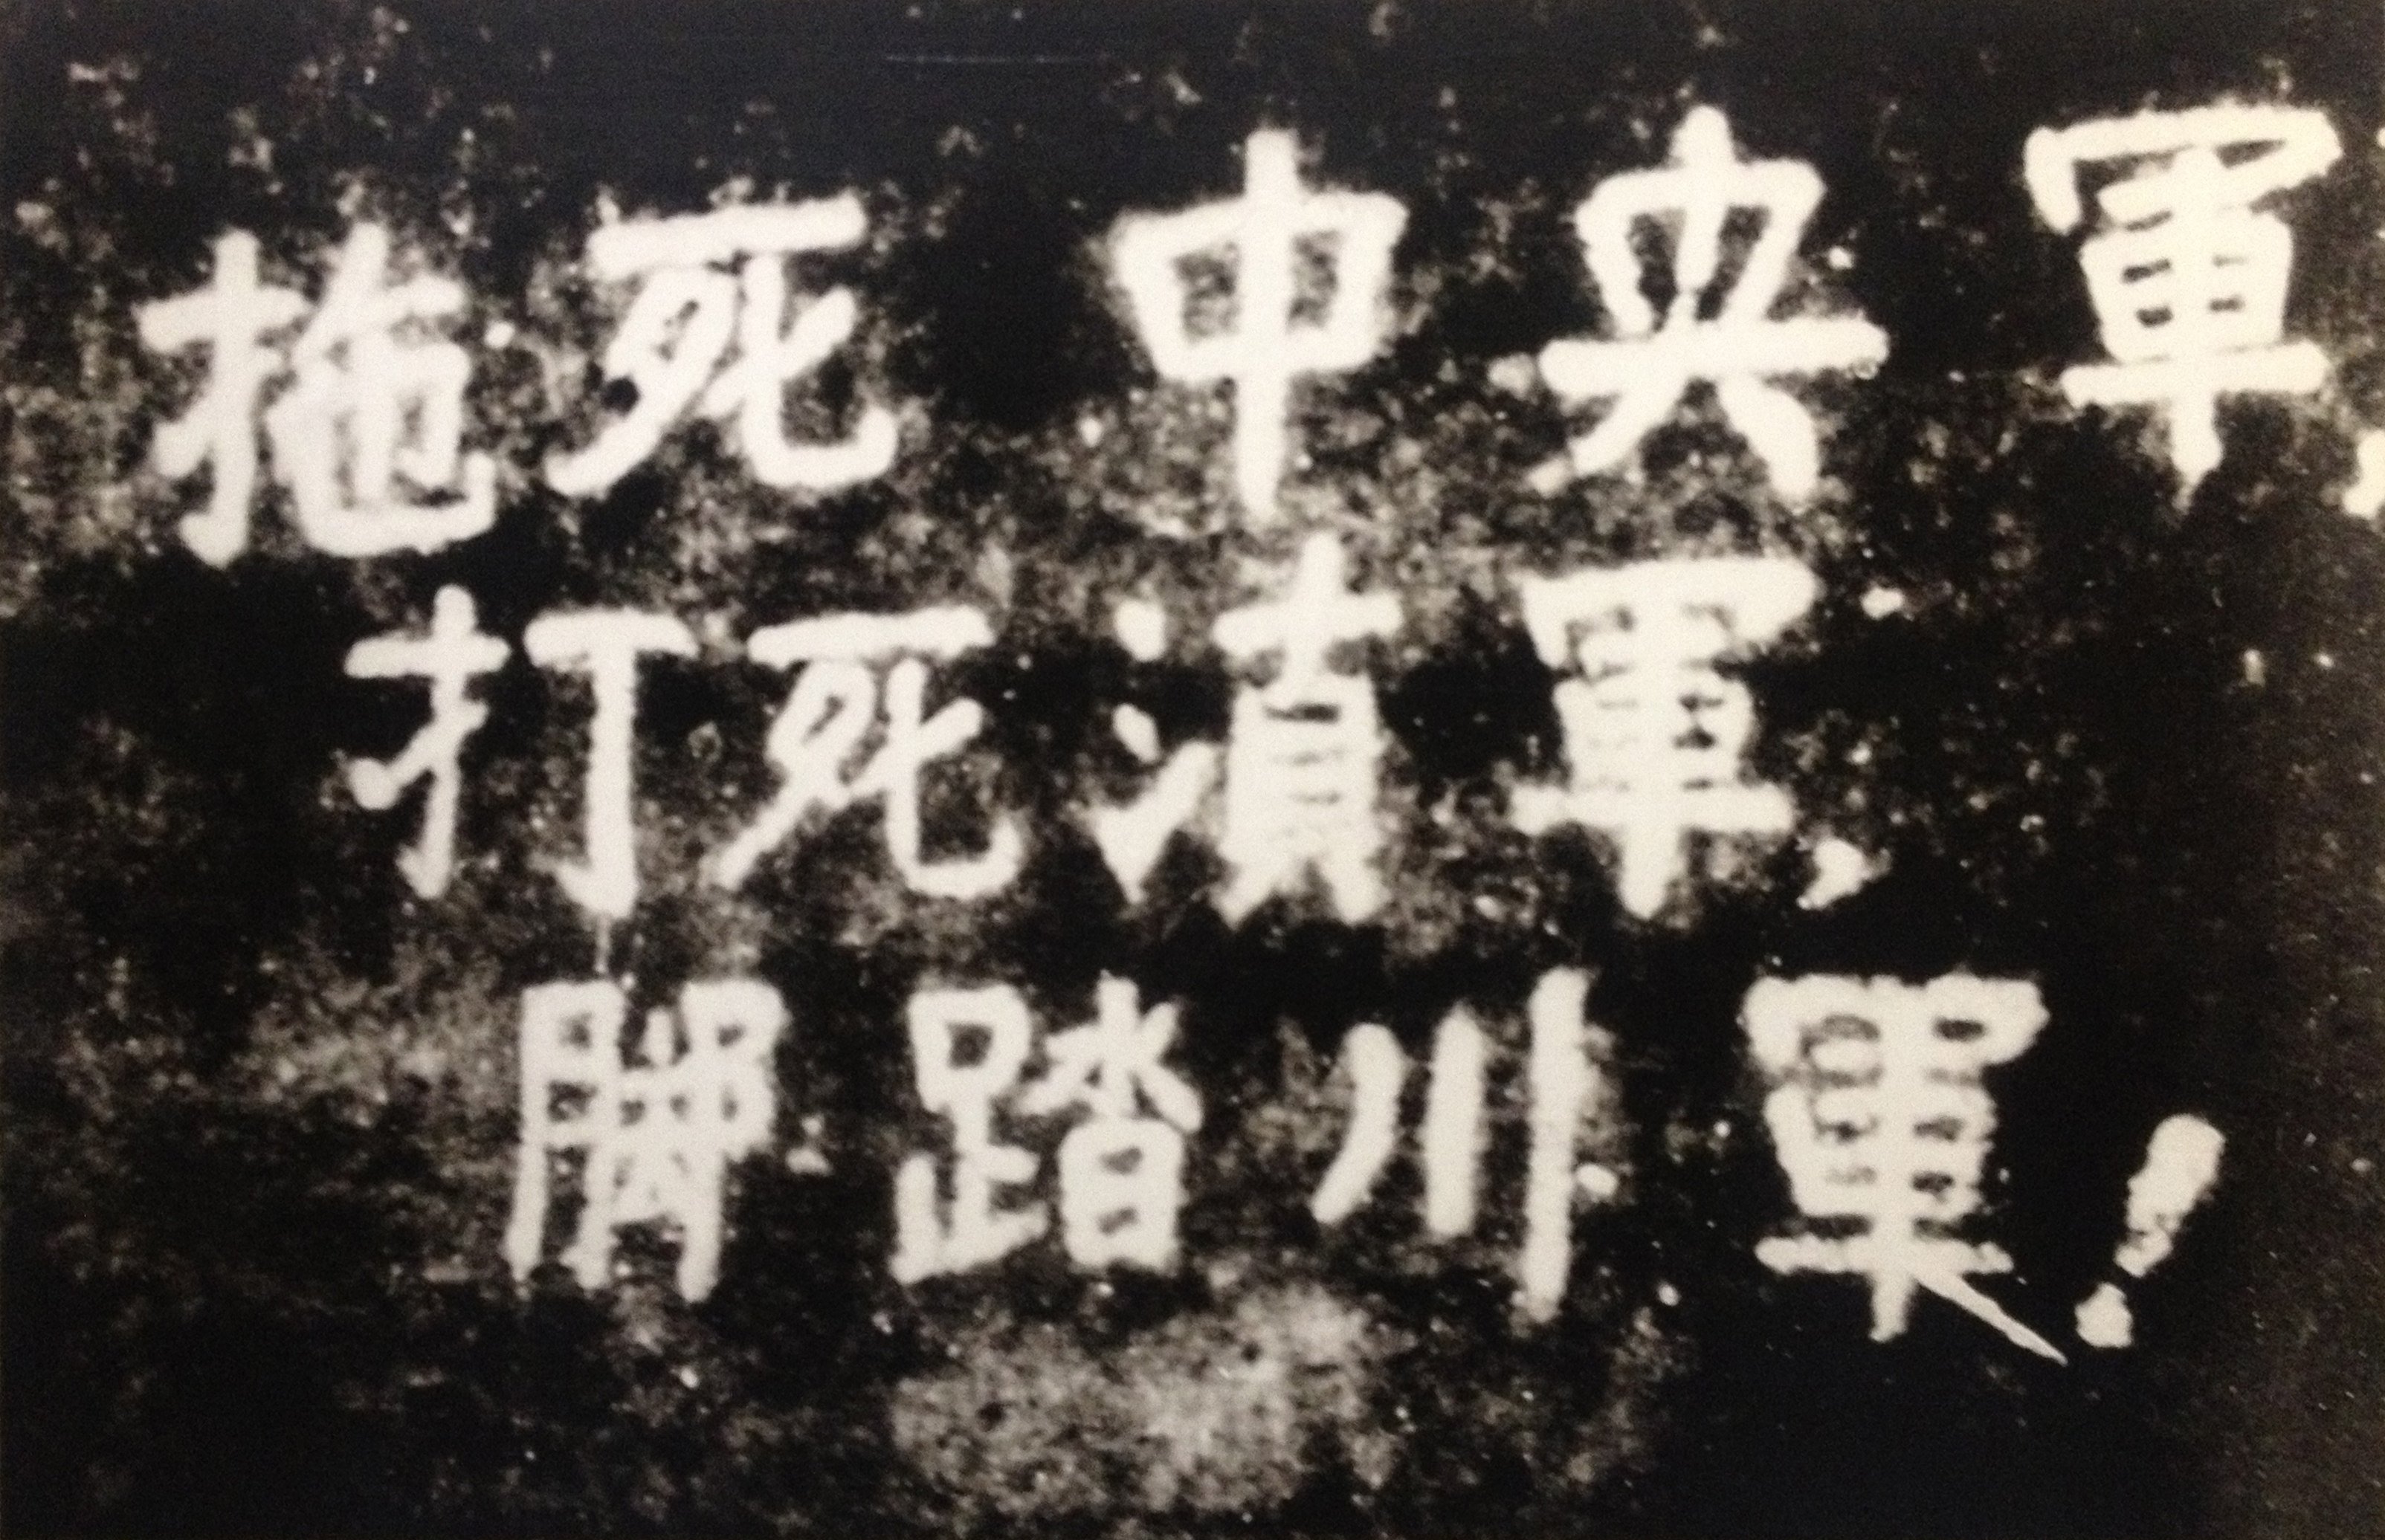 拖死中央軍，
打死滇軍，
腳踏川軍！